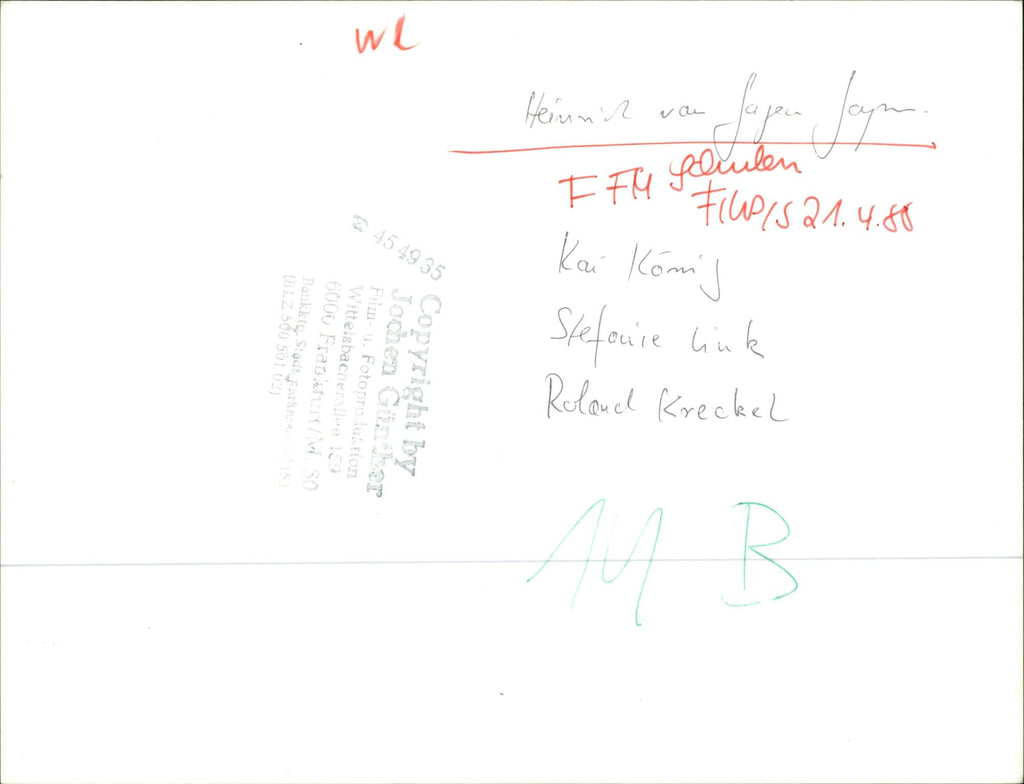 WL
Heinrich von Gagern Gymn.
FFM Schulen
21.4.88
Kai König
Stefanie Link
Roland Kreckel
☎ 45 49 35
Copyright by
Jochen Günther
Film- u. Fotoproduktion
Wittelsbacherallee 159
6000 Frankfurt/M. 60
Bankktg. Stadtsparkasse
(BLZ 500 501 02)
B